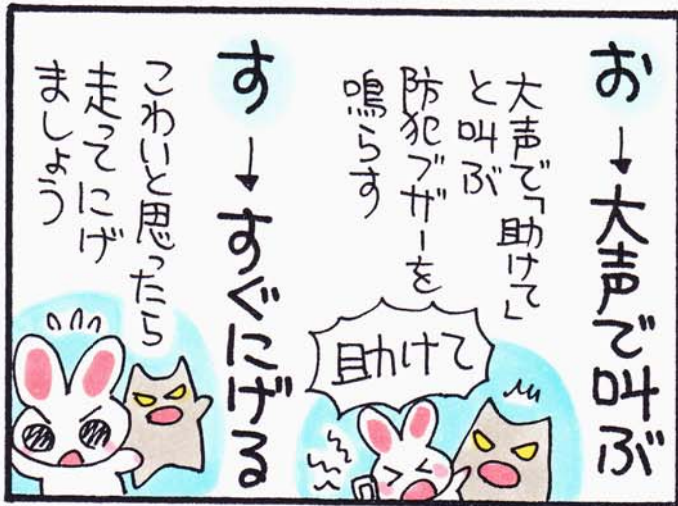 お→大声で叫ぶ
大声で「助けて」
と叫ぶ
防犯ブザーを
鳴らす
助けて
す→すぐにげる
こわいと思ったら
走ってにげ
ましょう